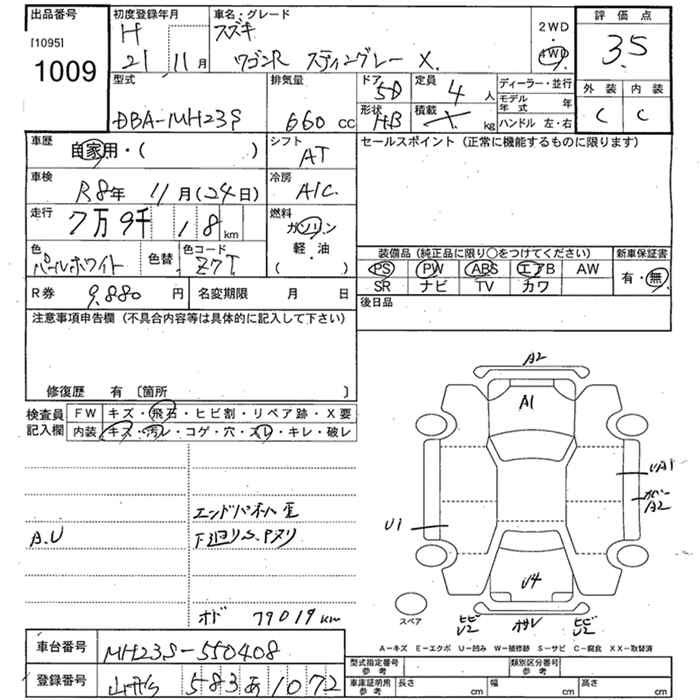 出品番号
[1095]
1009
初度登録年月
H 21 11 月
車名・グレード
スズキ
ワゴンR スティングレー X.
2WD
4WD
評価点
3.5
外装 内装
C C
型式
DBA-MH23S
排気量
660 cc
ドア 5D
形状 HB
定員 4 人
積載 kg
ディーラー・並行
モデル年式 年
ハンドル 左・右
車歴
自家用・( )
シフト
AT
セールスポイント (正常に機能するものに限ります)
車検
R8年 11月(24日)
冷房
A/C.
走行
7万9千 18 km
燃料
ガソリン
軽・油
( )
色
パールホワイト
色替
色コード
Z7T
装備品 (純正品に限り○をつけてください)
新車保証書
PS PW ABS エアB AW
有・無
SR ナビ TV カワ
R券 9,880 円
名変期限 月 日
後日品
注意事項申告欄 (不具合内容等は具体的に記入して下さい)
修復歴 有 〔箇所 〕
検査員
記入欄
FW キズ・飛石・ヒビ割・リペア跡・X要
内装 キズ・汚レ・コゲ・穴・スレ・キレ・破レ
A.U
下廻りS.Pヌリ
オド 79019 km
A2
A1
UA1
カバー
A2
U1
U4
スペア
ヒビ
U2
ヒビ
U2
A-キズ E-エクボ U-凹み W-補修跡 S-サビ C-腐食 XX-取替済
車台番号
MH23S-550408
登録番号
583 あ 1072
型式指定番号
参考
類別区分番号
参考
車庫証明用
参考
長さ cm
幅 cm
高さ cm